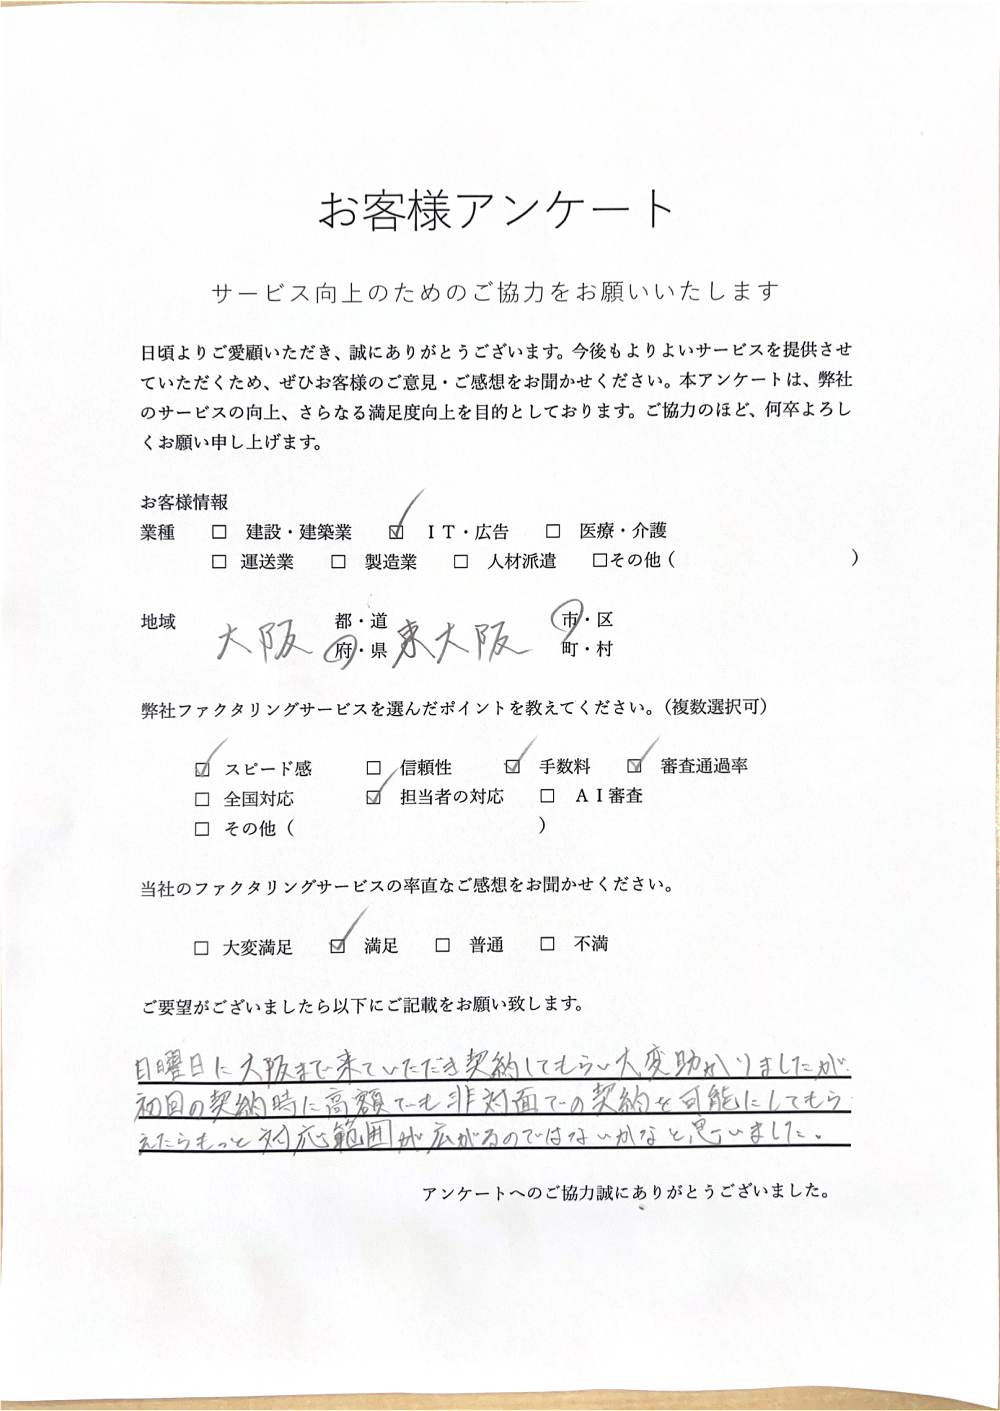 お客様アンケート
サービス向上のためのご協力をお願いいたします
日頃よりご愛顧いただき、誠にありがとうございます。今後もよりよいサービスを提供させ
ていただくため、ぜひお客様のご意見・ご感想をお聞かせください。本アンケートは、弊社
のサービスの向上、さらなる満足度向上を目的としております。ご協力のほど、何卒よろし
くお願い申し上げます。
お客様情報
業種 □ 建設・建築業 ☑ ＩＴ・広告 □ 医療・介護
□ 運送業 □ 製造業 □ 人材派遣 □その他（ ）
地域 大阪 都・道 府・県 東大阪 市・区 町・村
弊社ファクタリングサービスを選んだポイントを教えてください。（複数選択可）
☑ スピード感 □ 信頼性 ☑ 手数料 ☑ 審査通過率
□ 全国対応 ☑ 担当者の対応 □ ＡＩ審査
□ その他（ ）
当社のファクタリングサービスの率直なご感想をお聞かせください。
□ 大変満足 ☑ 満足 □ 普通 □ 不満
ご要望がございましたら以下にご記載をお願い致します。
日曜日に大阪まで来ていただき契約してもらい大変助かりましたが
初回の契約時に高額でも非対面での契約を可能にしてもら
えたらもっと対応範囲が広がるのではないかなと思いました。
アンケートへのご協力誠にありがとうございました。